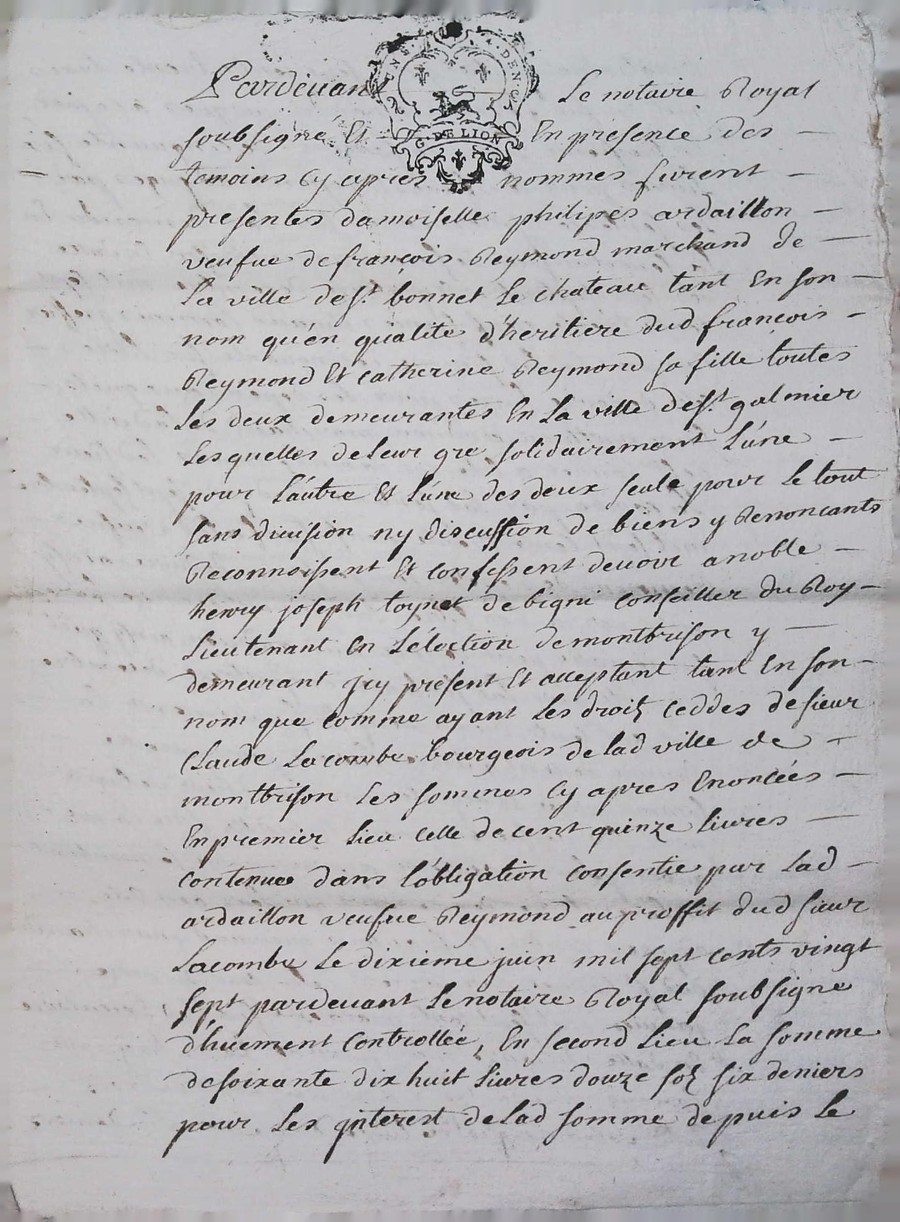 Pardevant Le notaire Royal
soubsigné Et En presence des
temoins Cy apres nommes furent
presentes damoiselle philipes ardaillon
veufue de françois Reymond marchand de
La ville de st. bonnet Le chateau tant En son
nom qu'en qualite d'heritiere dud françois
Reymond Et catherine Reymond sa fille toutes
Les deux demeurantes En La ville de st. galmier
Lesquelles de Leur gre solidairement L'une
pour L'autre Et L'une des deux seule pour Le tout
sans diuision ny discussion de biens y Renoncants
Reconnoissent Et confessent deuoir a noble
henry joseph toynet de bigni Conseiller du Roy
Lieutenant En L'élection de montbrison y
demeurant jcy present Et acceptant tant En son
nom que comme ayant Les droitz ceddes de sieur
Claude Lacombe bourgeois de lad ville de
montbrison Les sommes Cy apres Enoncées
En premier Lieu Celle de cent quinze Livres
Contenue dans l'óbligation consentie par Lad
ardaillon veufue Reymond au proffit dud sieur
Lacombe Le dixieme juin mil sept cents vingt
sept pardeuant Le notaire Royal soubsigne
d'huement Controllée, En second Lieu La somme
de soixante dix huit Livres douze solz six deniers
pour Les jnterest de Lad somme depuis Le
G. DE LION